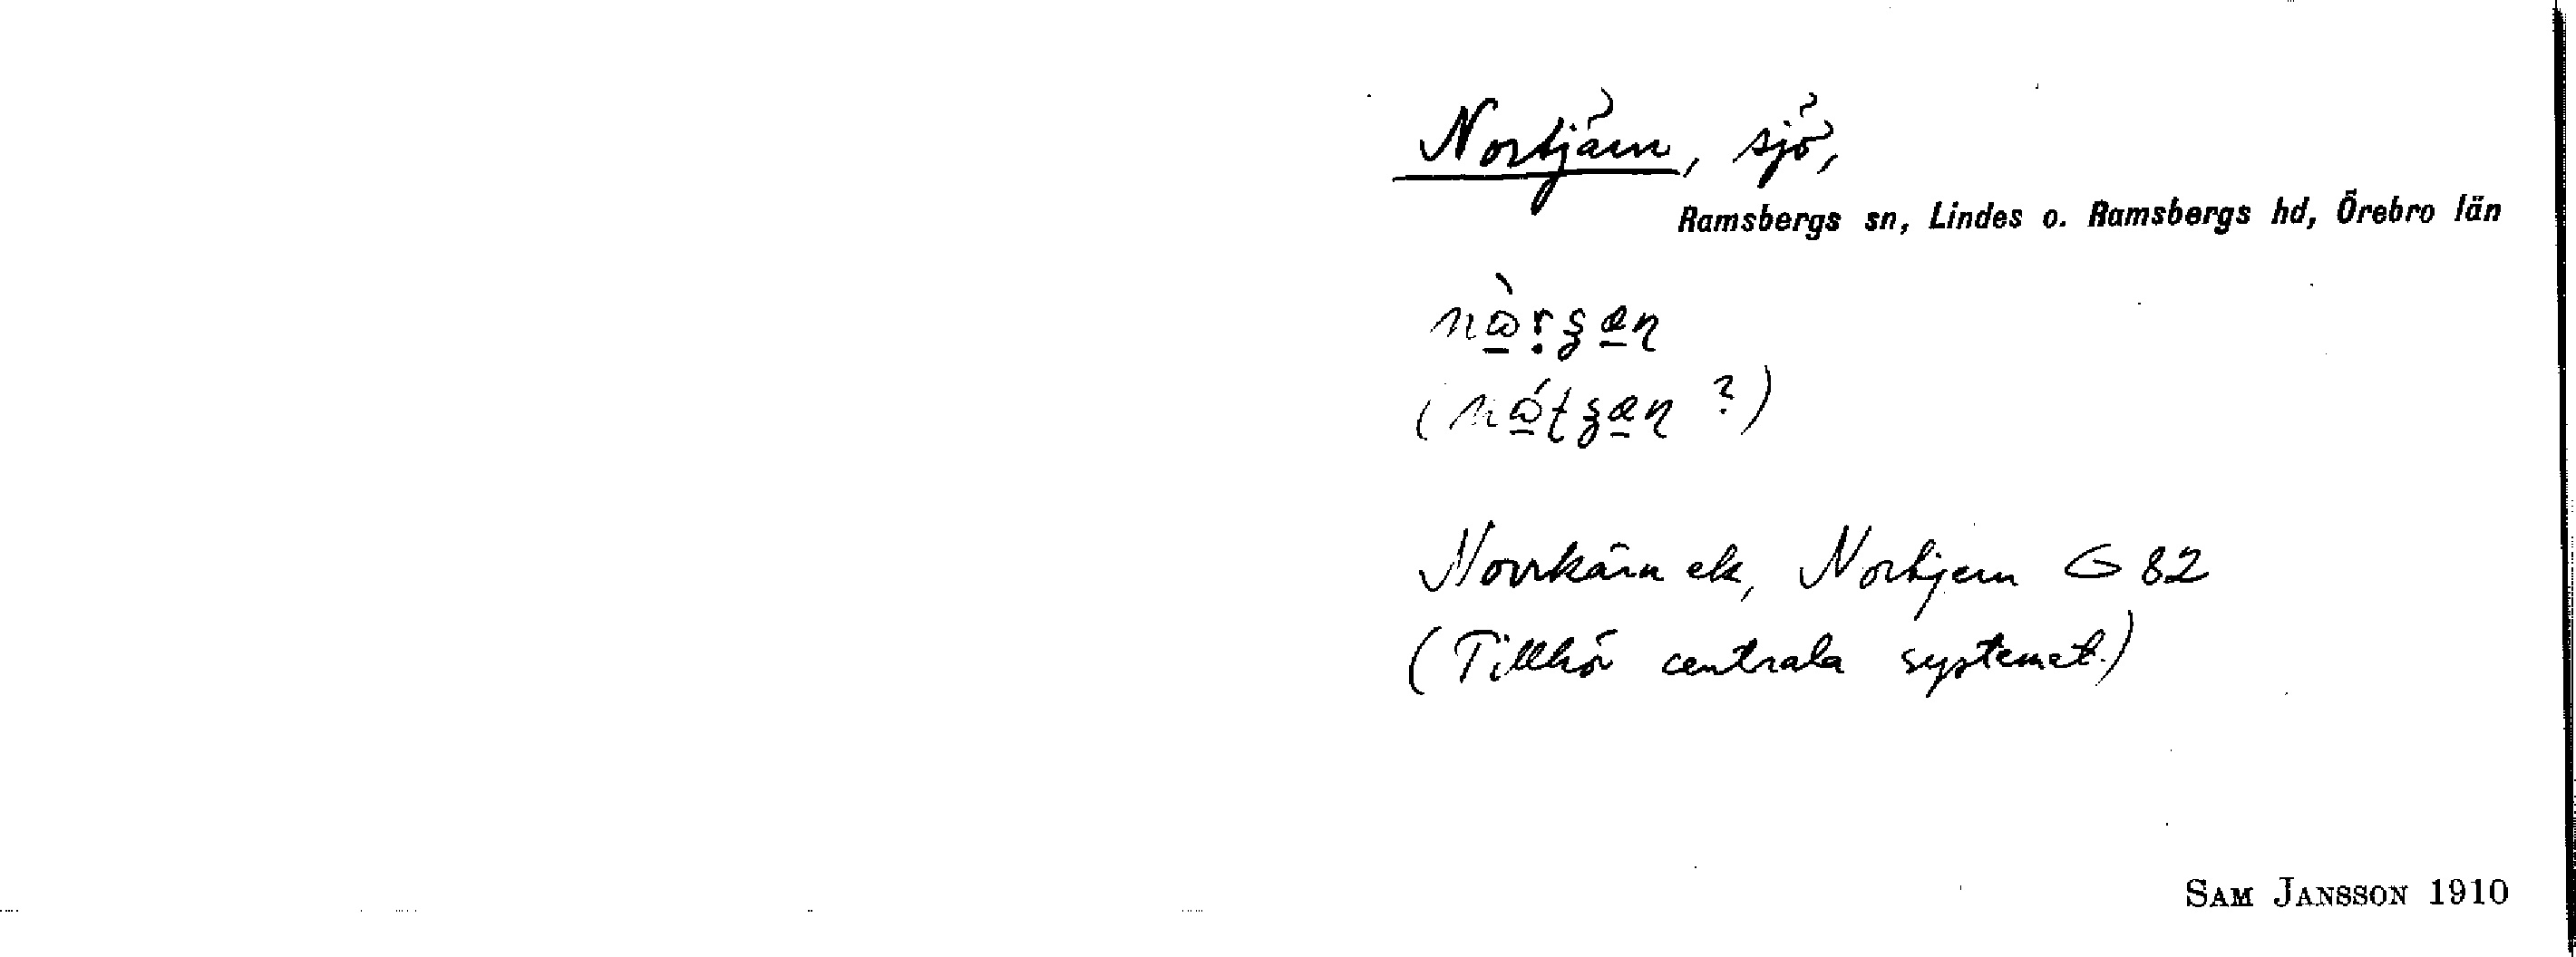 Nortjärn, sjö,
Ramsbergs sn, Lindes o. Ramsbergs hd, Örebro län
Norrkärn ek, Nortjern G 82
(Tillhör centrala systemet.)
SAM JANSSON 1910